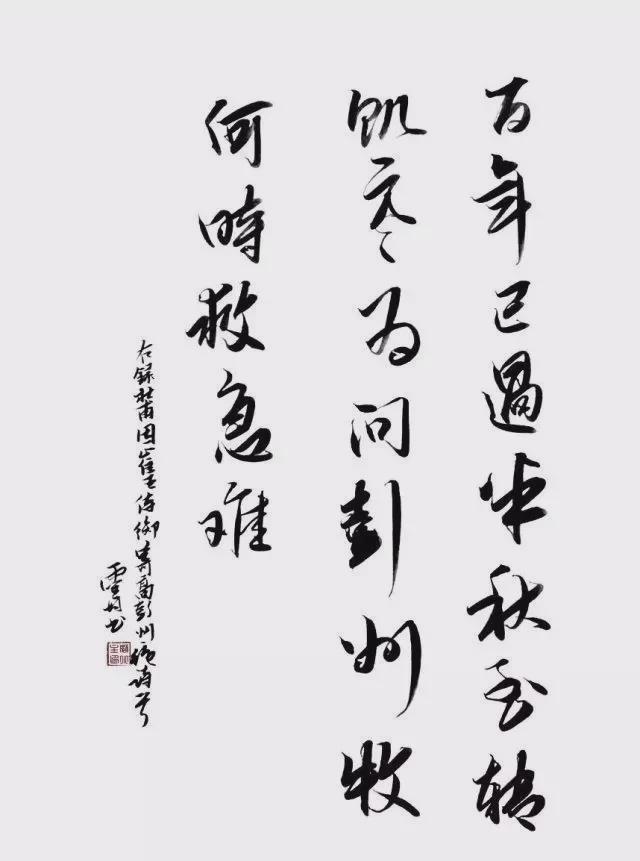 百年已過半秋至轉
飢寒為問彭州牧
何時救急难
右録杜甫因崔五侍御寄高彭州絶
書